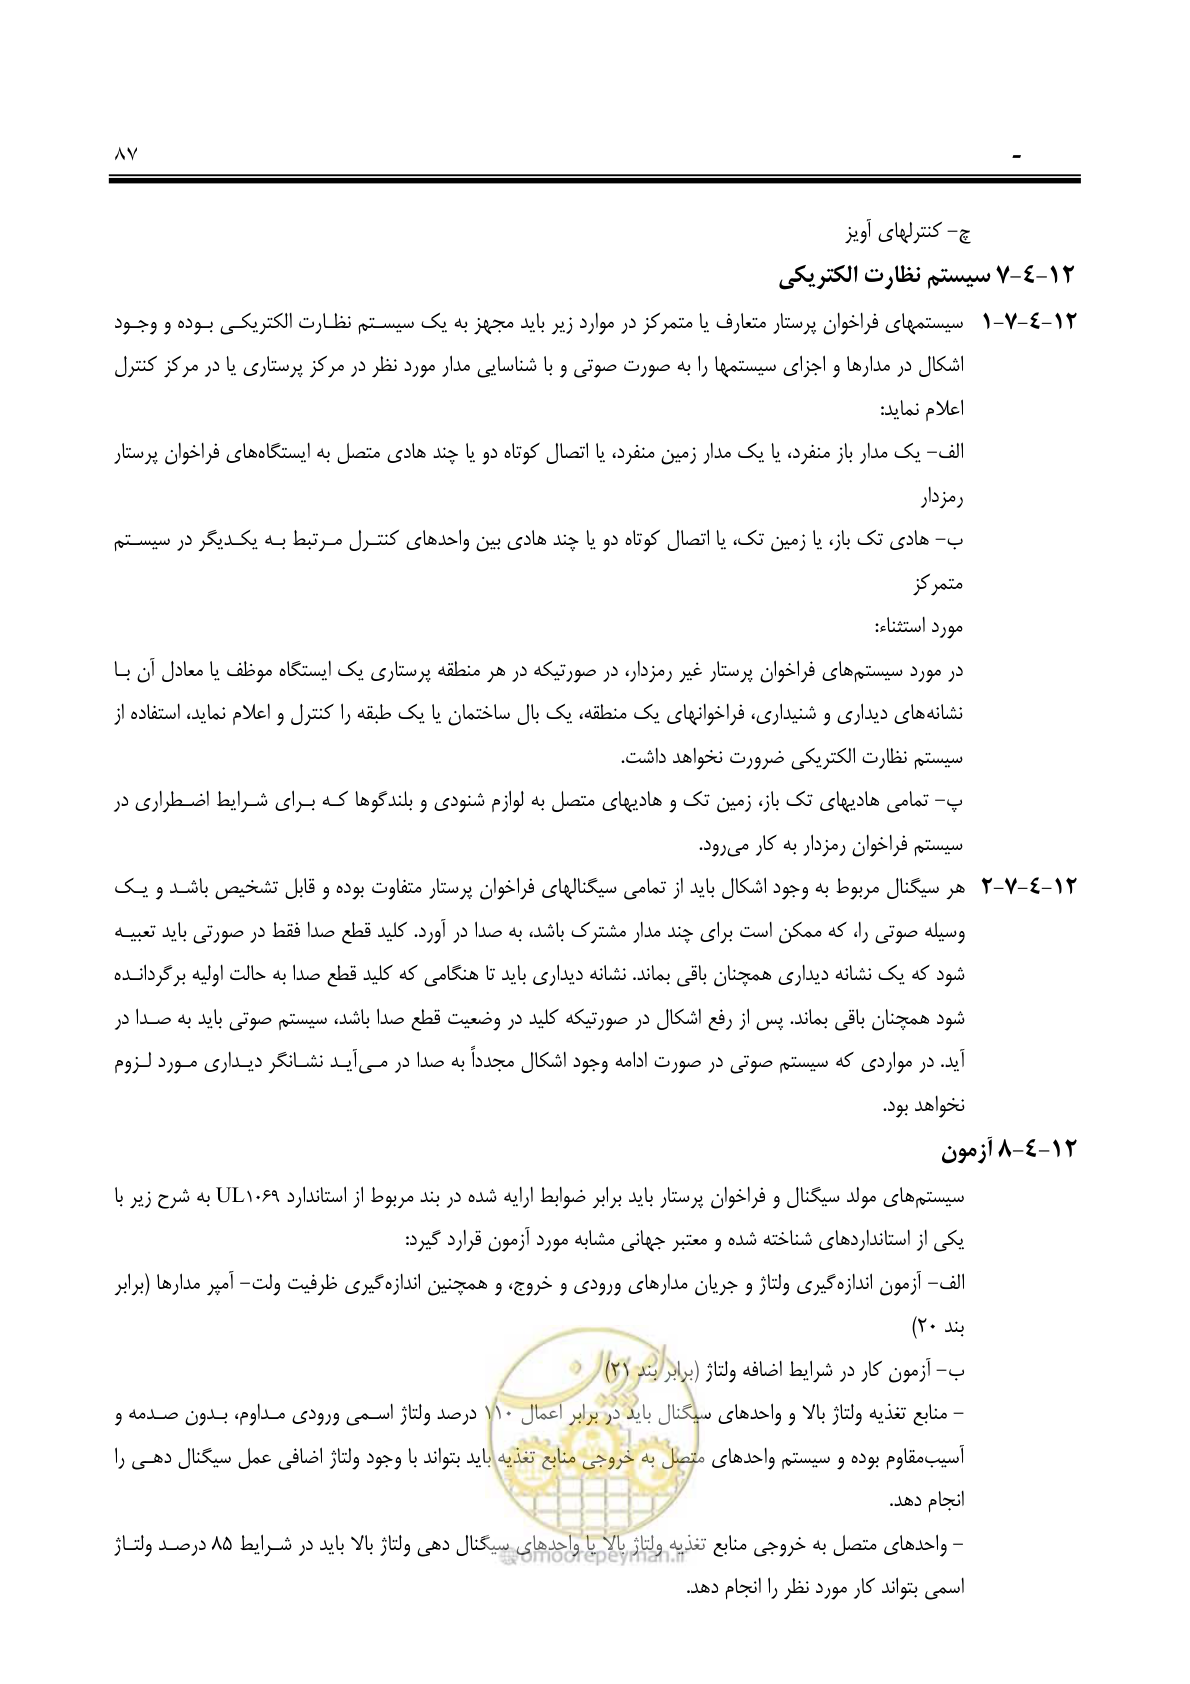 - ۸۷
چ- کنترلهای آویز
۷-٤-۱۲ سیستم نظارت الکتریکی
۱-۷-٤-۱۲ سیستمهای فراخوان پرستار متعارف یا متمرکز در موارد زیر باید مجهز به یک سیستم نظارت الکتریکی بوده و وجود
اشکال در مدارها و اجزای سیستمها را به صورت صوتی و با شناسایی مدار مورد نظر در مرکز پرستاری یا در مرکز کنترل
اعلام نماید:
الف- یک مدار باز منفرد، یا یک مدار زمین منفرد، یا اتصال کوتاه دو یا چند هادی متصل به ایستگاه‌های فراخوان پرستار
رمزدار
ب- هادی تک باز، یا زمین تک، یا اتصال کوتاه دو یا چند هادی بین واحدهای کنترل مرتبط به یکدیگر در سیستم
متمرکز
مورد استثناء:
در مورد سیستم‌های فراخوان پرستار غیر رمزدار، در صورتیکه در هر منطقه پرستاری یک ایستگاه موظف یا معادل آن با
نشانه‌های دیداری و شنیداری، فراخوانهای یک منطقه، یک بال ساختمان یا یک طبقه را کنترل و اعلام نماید، استفاده از
سیستم نظارت الکتریکی ضرورت نخواهد داشت.
پ- تمامی هادیهای تک باز، زمین تک و هادیهای متصل به لوازم شنودی و بلندگوها که برای شرایط اضطراری در
سیستم فراخوان رمزدار به کار می‌رود.
۲-۷-٤-۱۲ هر سیگنال مربوط به وجود اشکال باید از تمامی سیگنالهای فراخوان پرستار متفاوت بوده و قابل تشخیص باشد و یک
وسیله صوتی را، که ممکن است برای چند مدار مشترک باشد، به صدا در آورد. کلید قطع صدا فقط در صورتی باید تعبیه
شود که یک نشانه دیداری همچنان باقی بماند. نشانه دیداری باید تا هنگامی که کلید قطع صدا به حالت اولیه برگردانده
شود همچنان باقی بماند. پس از رفع اشکال در صورتیکه کلید در وضعیت قطع صدا باشد، سیستم صوتی باید به صدا در
آید. در مواردی که سیستم صوتی در صورت ادامه وجود اشکال مجدداً به صدا در می‌آید نشانگر دیداری مورد لزوم
نخواهد بود.
۸-٤-۱۲ آزمون
سیستم‌های مولد سیگنال و فراخوان پرستار باید برابر ضوابط ارایه شده در بند مربوط از استاندارد UL۱۰۶۹ به شرح زیر با
یکی از استانداردهای شناخته شده و معتبر جهانی مشابه مورد آزمون قرارد گیرد:
الف- آزمون اندازه‌گیری ولتاژ و جریان مدارهای ورودی و خروج، و همچنین اندازه‌گیری ظرفیت ولت- آمپر مدارها (برابر
بند ۲۰)
ب- آزمون کار در شرایط اضافه ولتاژ (برابر بند ۲۱)
- منابع تغذیه ولتاژ بالا و واحدهای سیگنال باید در برابر اعمال ۱۱۰ درصد ولتاژ اسمی ورودی مداوم، بدون صدمه و
آسیب‌مقاوم بوده و سیستم واحدهای متصل به خروجی منابع تغذیه باید بتواند با وجود ولتاژ اضافی عمل سیگنال دهی را
انجام دهد.
- واحدهای متصل به خروجی منابع تغذیه ولتاژ بالا یا واحدهای سیگنال دهی ولتاژ بالا باید در شرایط ۸۵ درصد ولتاژ
اسمی بتواند کار مورد نظر را انجام دهد.
امور پیمان
@omoorepeyman.ir